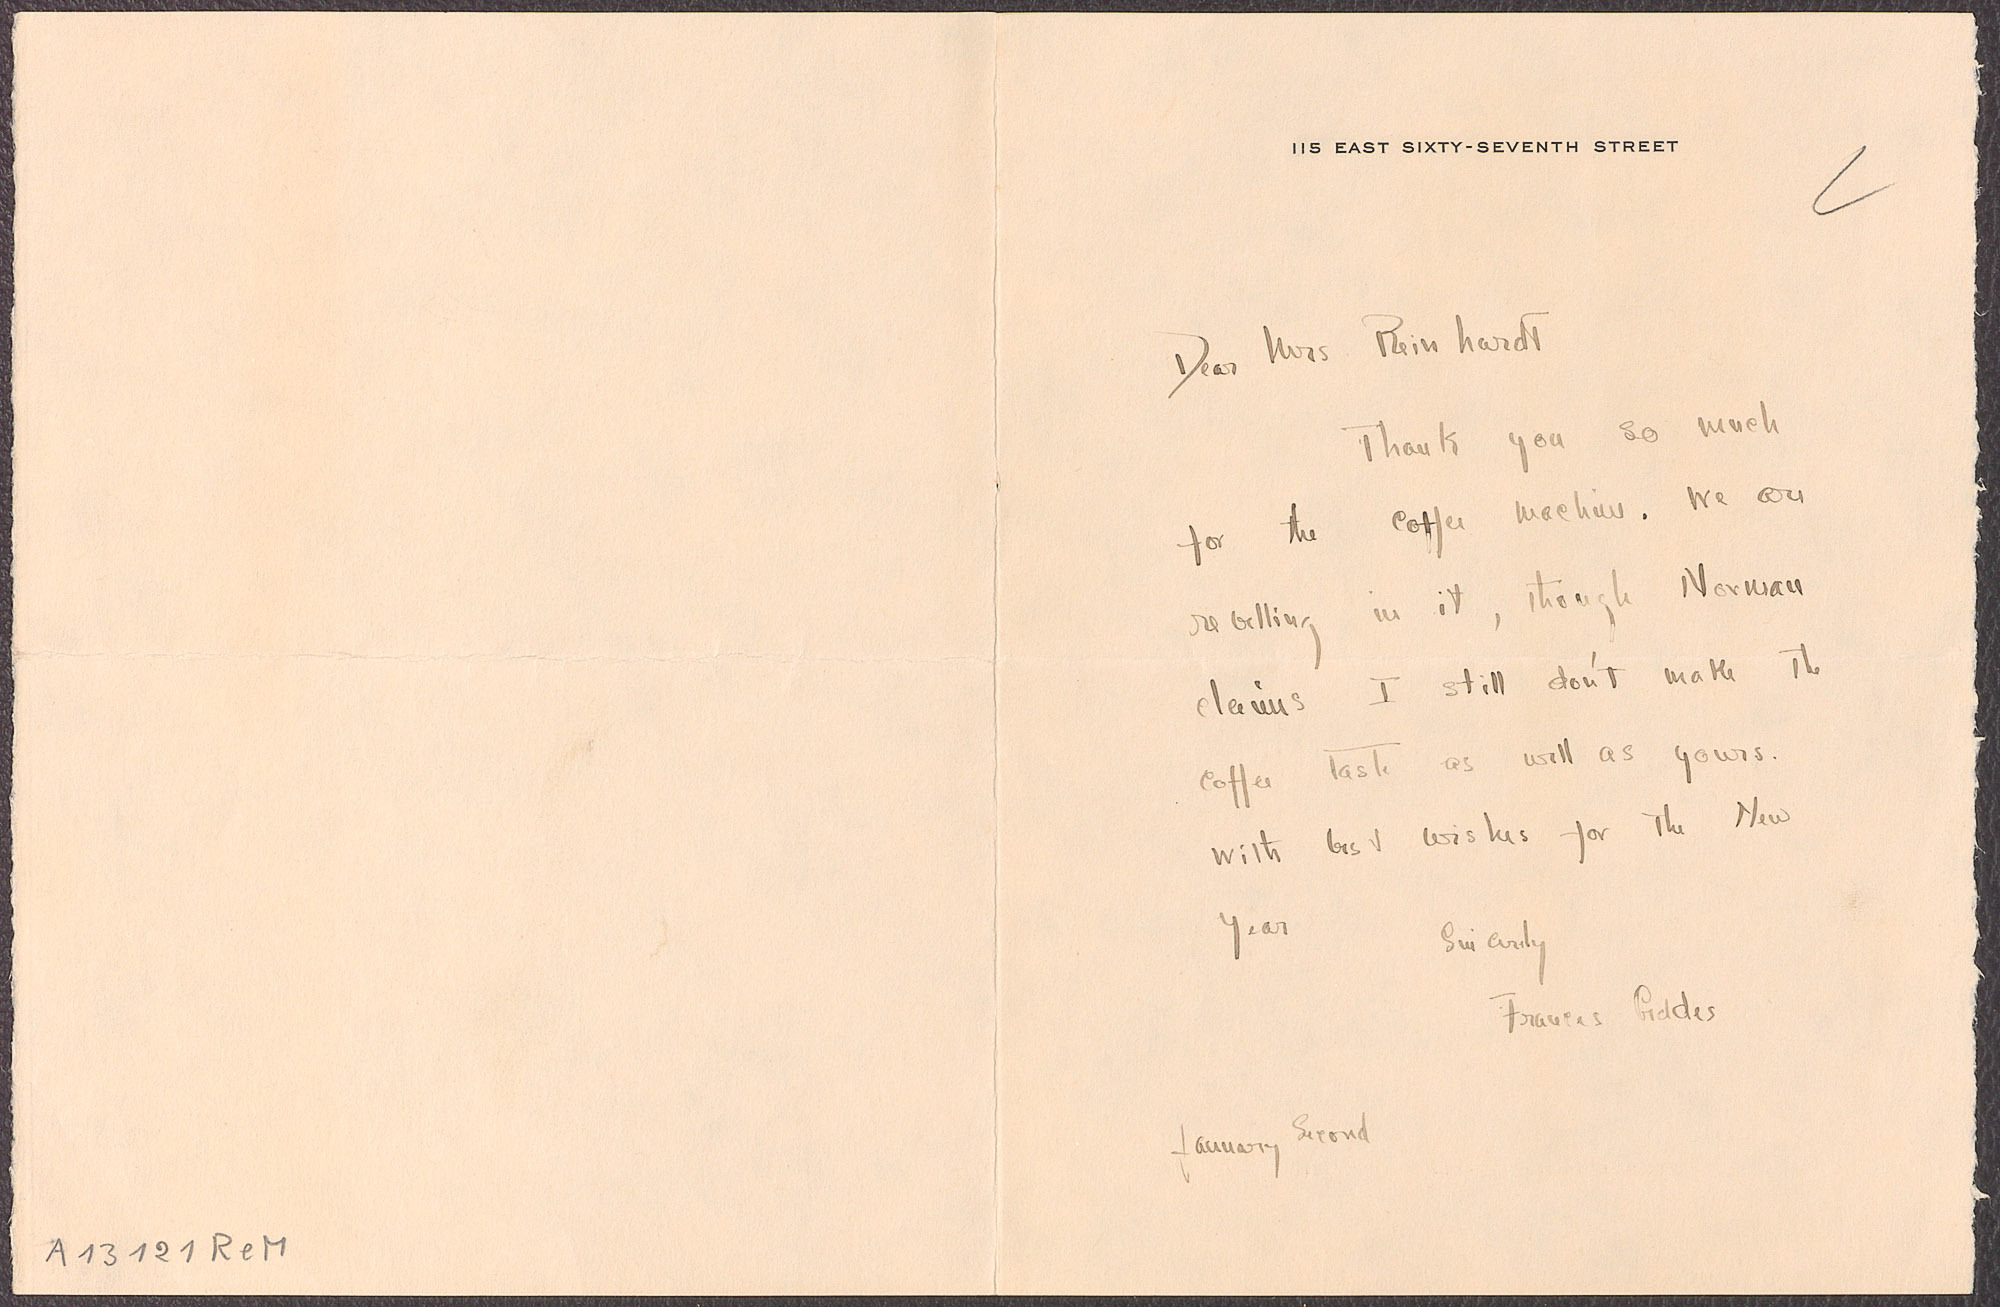 115 EAST SIXTY-SEVENTH STREET
Dear Mrs Reinhardt
Thank you so much
for the coffee machine. We are
revelling in it, though Norman
claims I still don't make the
coffee taste as well as yours.
With best wishes for the New
Year
Sincerely
Frances Geddes
January Second
A13121ReM